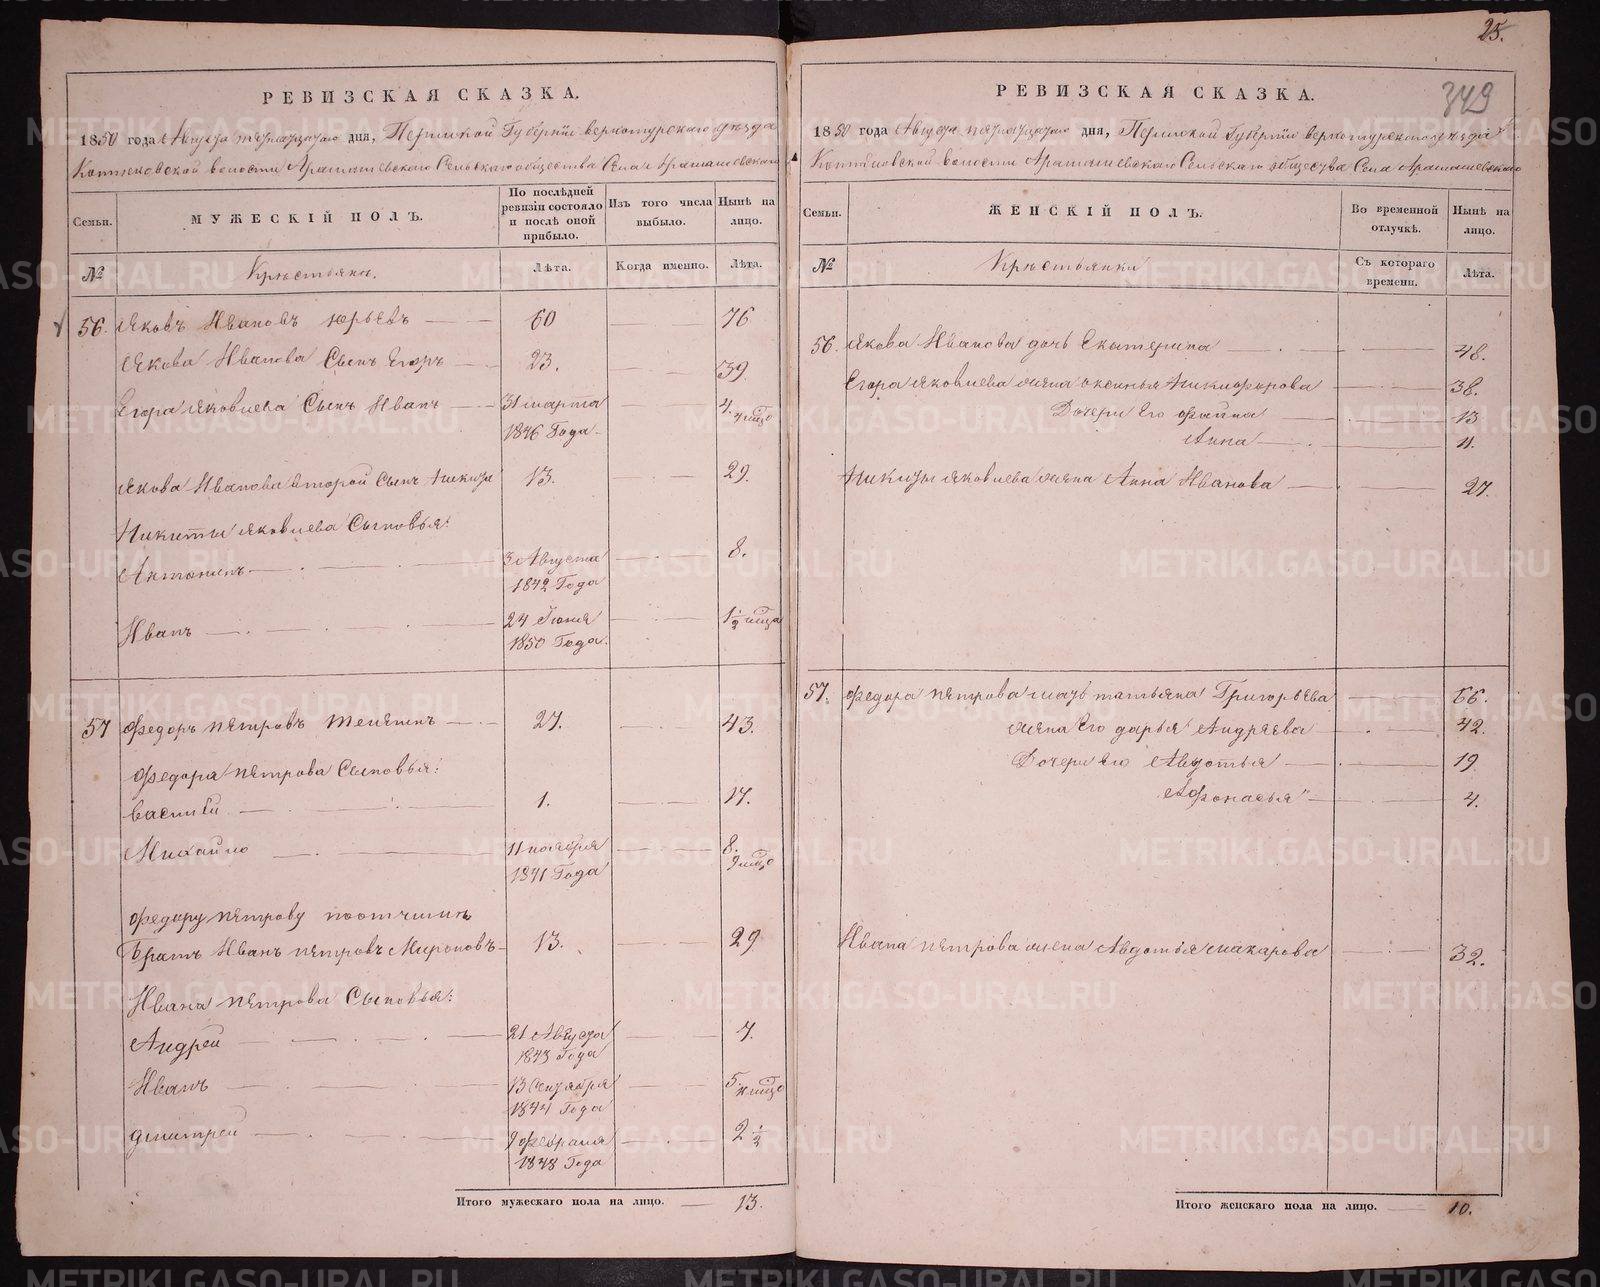 25.
349
РЕВИЗСКАЯ СКАЗКА.
1850 года Августа пятнатцатаго дня, Пермской Губернiи верхотурскаго уѣзда
Коптеловской волости Арамашевскаго Сельскаго общества Села Арамашевскаго
Семьи.
МУЖЕСКIЙ ПОЛЪ.
По послѣдней ревизiи состояло и послѣ оной прибыло.
Изъ того числа выбыло.
Нынѣ на лицо.
№
Крѣстьянъ.
Лѣта.
Когда именно.
Лѣта.
56. Яковъ Ивановъ юрьевъ 60 76
Якова Иванова Сынъ Егоръ 23. 39
Егора Яковлева Сынъ Иванъ 31 марта 1846 Года 4.
Якова Иванова второй Сынъ Никита 13. 29.
Никиты Яковлева Сыновья:
Антонинъ 3 Августа 1842 Года 8.
Иванъ 24 Iюня 1850 Года. 1 1/2
57 Федоръ пѣтровъ 27. 43.
Федора пѣтрова Сыновья:
василiй 1. 17.
Михайло 11 ноября 1841 Года 8.
Федору пѣтрову
Братъ Иванъ пѣтровъ Мироновъ 13. 29
Ивана пѣтрова Сыновья:
Андрей 21 Августа 1843 Года 7.
Иванъ 13 Сентября 1844 Года 5.
дмитрей 9 Февраля 1848 Года 2 1/2
Итого мужескаго пола на лицо. 13.
РЕВИЗСКАЯ СКАЗКА.
1850 года Августа пятнатцатаго дня, Пермской Губернiи верхотурскаго уѣзда
Коптѣловской волости Арамашевскаго Сельскаго общества Села Арамашевскаго
Семьи.
ЖЕНСКIЙ ПОЛЪ.
Во временной отлучкѣ.
Нынѣ на лицо.
№
Крѣстьянки
Съ котораго времени.
Лѣта.
56. Якова Иванова дочь Екатерина 48.
Егора Яковлева жена оксинья Никифорова 38.
Дочери Его 13
Анна 11.
Никиты Яковлева жена Анна Иванова 27.
57. Федора пѣтрова мать татьяна Григорьева 66.
жена Его дарья Андрѣева 42.
Дочери Его Авдотья 19
Афонасья 4.
Ивана пѣтрова жена Авдотья макарова 32.
Итого женскаго пола на лицо. 10.
METRIKI.GASO-URAL.RU